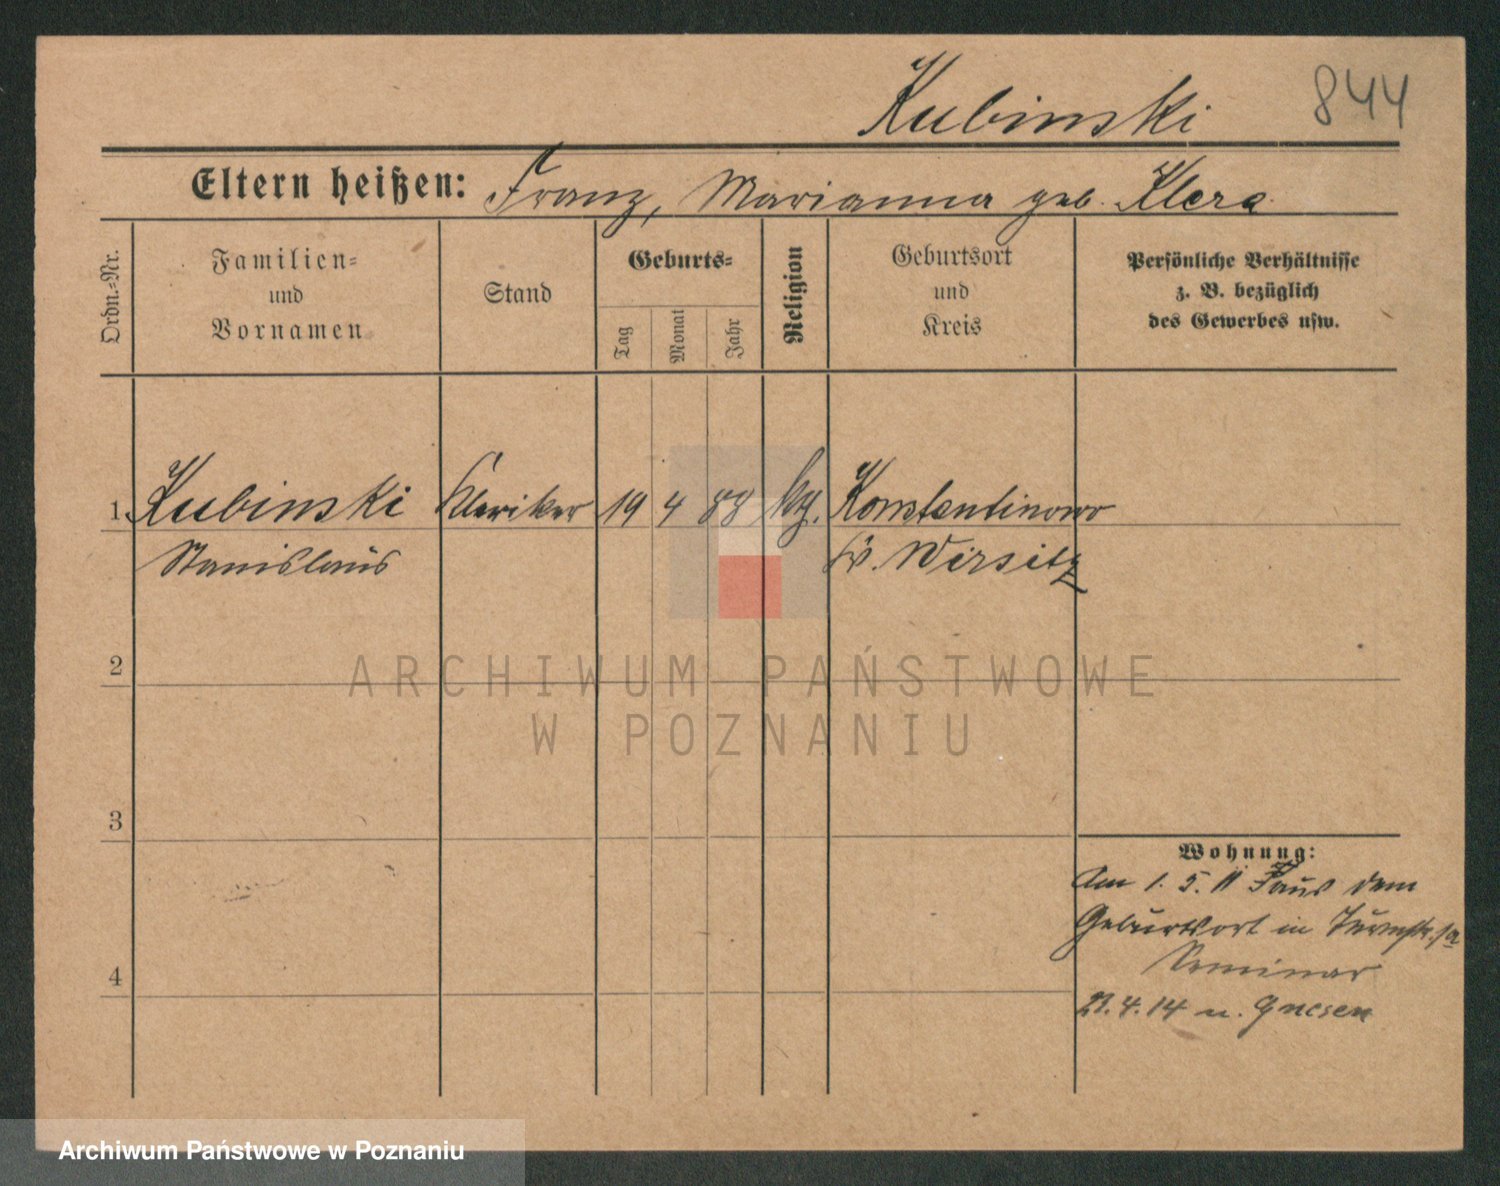 Kubinski 844
Eltern heißen: Franz, Marianna geb. Klera
Ordn.-Nr.
Familien-
und
Vornamen
Stand
Geburts-
Tag
Monat
Jahr
Religion
Geburtsort
und
Kreis
Persönliche Verhältnisse
z. B. bezüglich
des Gewerbes usw.
1 Kubinski Kleriker 19 4 88 Konstantinowo
Stanislaus Kr. Wirsitz
2
3
4
Wohnung:
Am 1. 5. 11 aus dem
Geburtsort in Turmstr.
Seminar
23. 4. 14 n. Gnesen
ARCHIWUM PAŃSTWOWE
W POZNANIU
Archiwum Państwowe w Poznaniu